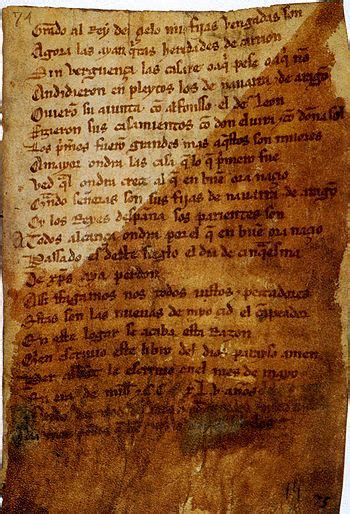 74
Grado al Rey del çielo mis fijas vengadas son
Agora las ayan qitas heredades de carrion
Sin verguença las casare o aq pese o aq nō
Andidieron en pleytos los de nauarra τ de aragō
Ouierō su aiunta cō alfonsso el de Leon
Fizieron sus casamientos cō don eluira τ cō doña sol
Los pmos fuerō grandes mas aqstos son miiores
A mayor ondra las casa q lo q pmero fue
Ved ql ondra creçe al q en buē ora naçio
Qndo señoras son sus fijas de nauarra τ de aragō
Oy los Reyes despaña sos parientes son
A todos alcança ondra por el q en buē ora naçio
Passado es deste sieglo el dia de cinqaesma
De xps aya perdon
Assi ffagamos nos todos iustos τ peccadores
Estas son las nueuas de myo çid el campeador
En este logar se acaba esta Razon
Qien escriuio este libro del dios parayso amen
Per abbat le escriuio en el mes de mayo
En era de mill τ CC xLv años